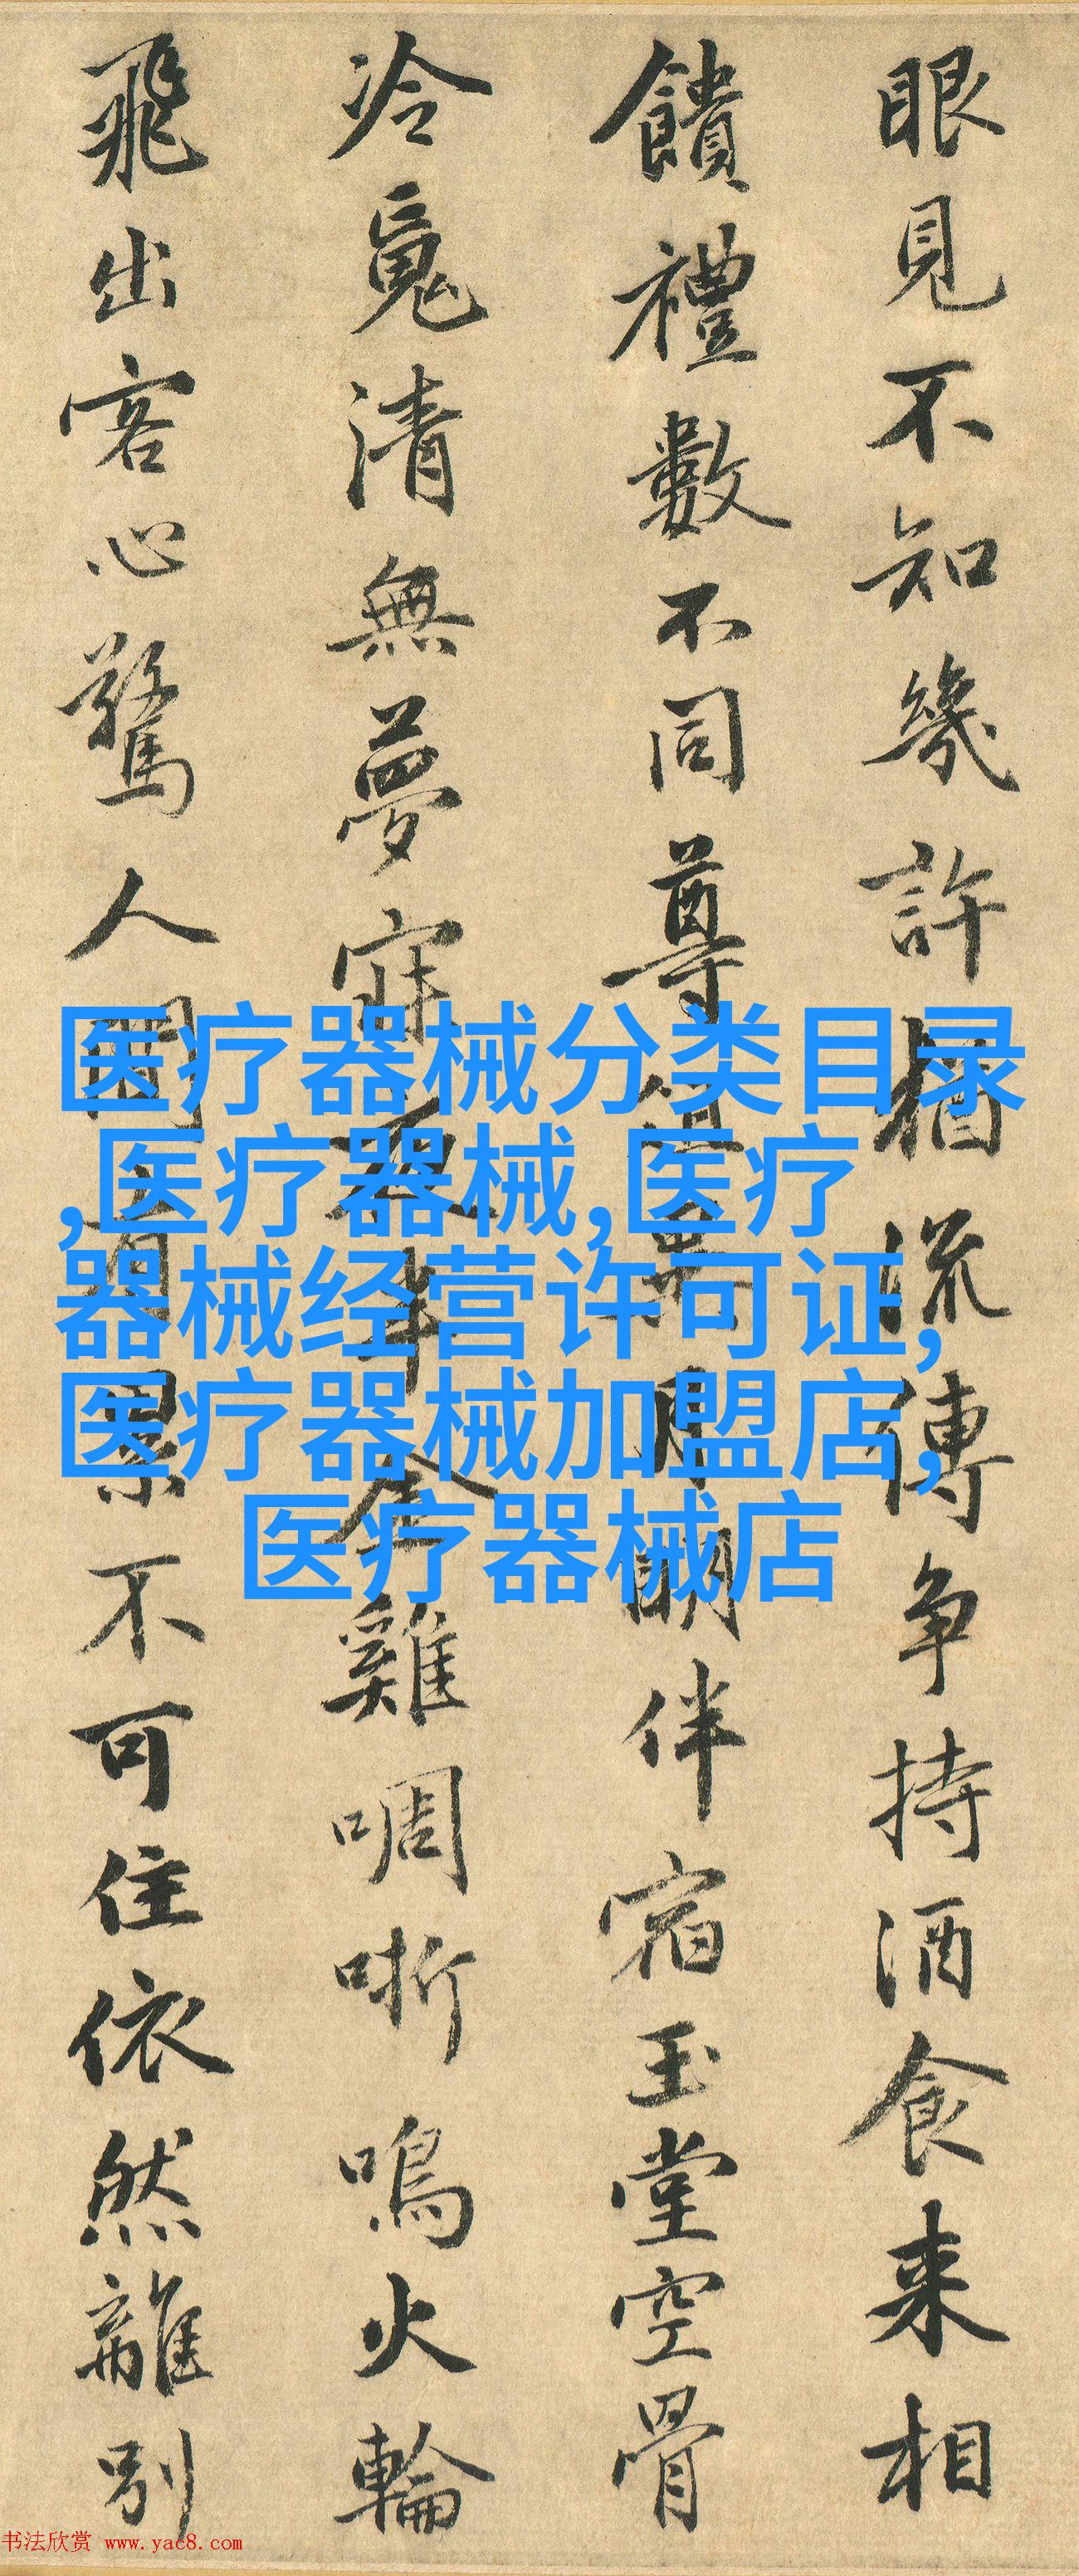 眼見不知幾許猶流傳争持酒食来相
饋禮數不同尊俎異月明伴宿玉堂空骨
冷䰟清無夢寐夜半金雞啁哳鳴火輪
飛出客心驚人間有累不可住依然離別
医疗器械分类目录
,医疗器械,医疗
器械经营许可证,
医疗器械加盟店,
医疗器械店
书法欣赏 www.yac8.com